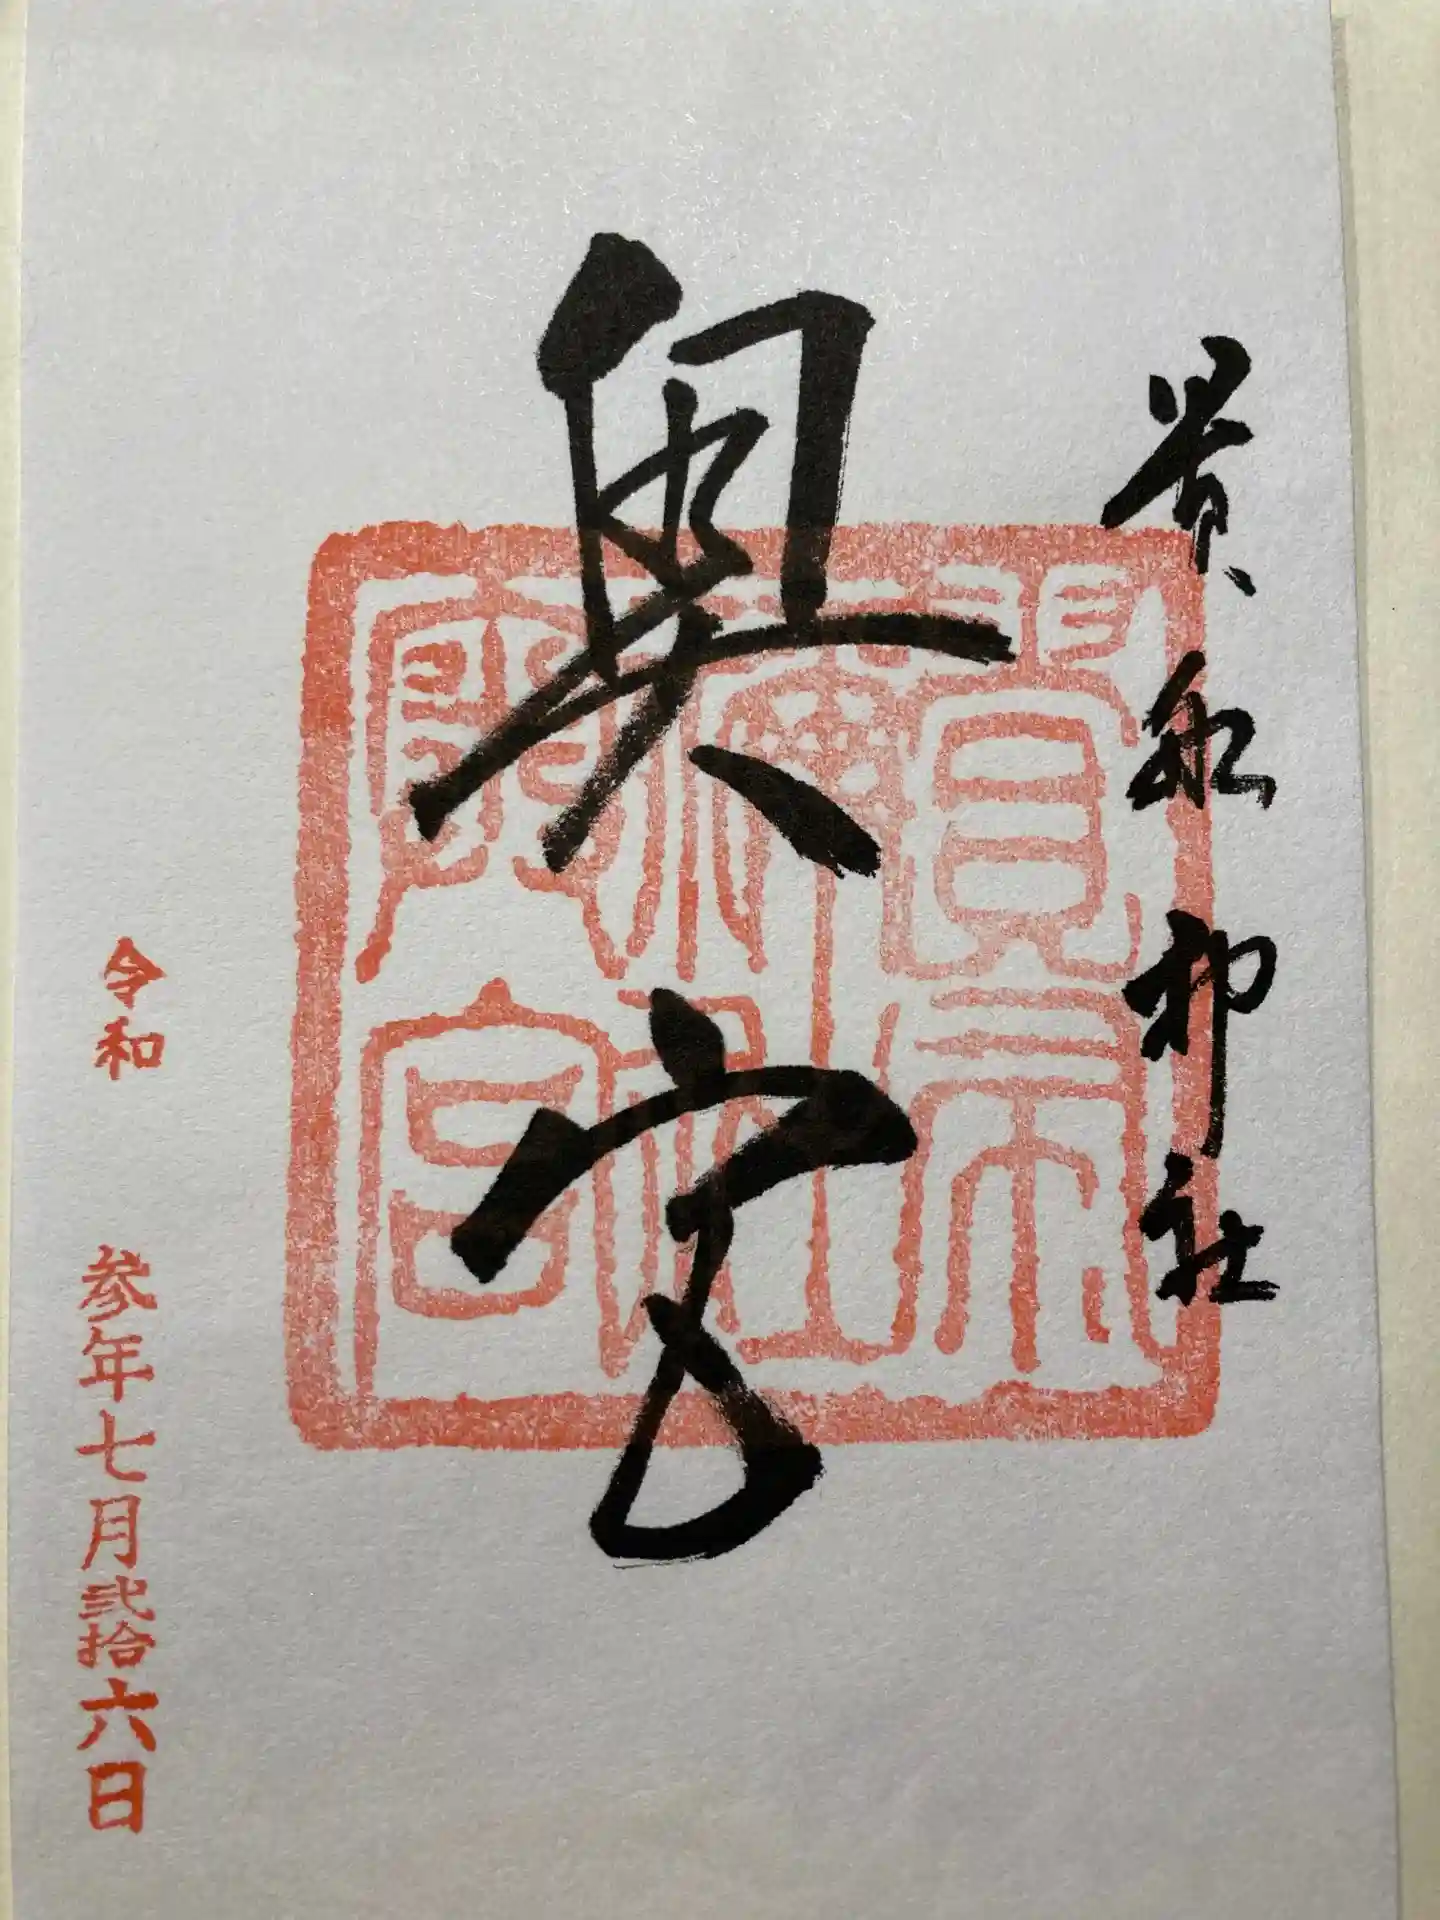 貴船神社
奥宮
貴布
禰社
奥宮
令和 参年七月弐拾六日